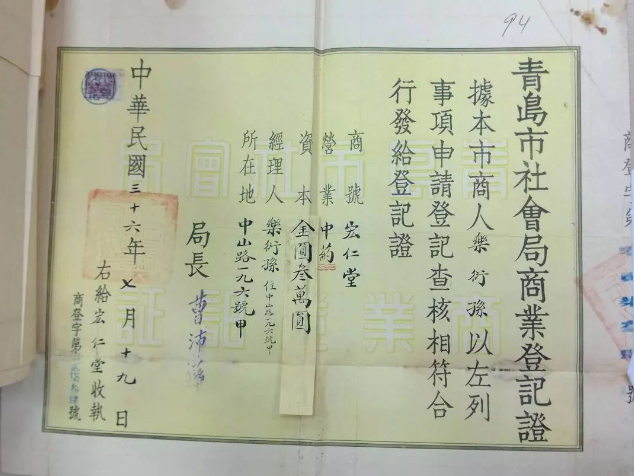 94
青島市社會局商業登記證
據本市商人樂衍孫以左列
事項申請登記查核相符合
行發給登記證
商號 宏仁堂
營業 中药
資本 金圓叁萬圓
經理人 樂衍孫 住中山路一九六號甲
所在地 中山路一九六號甲
局長
中華民國三十六年七月十九日
右給宏仁堂收執
商登字第
號
青島市社會局
商業登記証